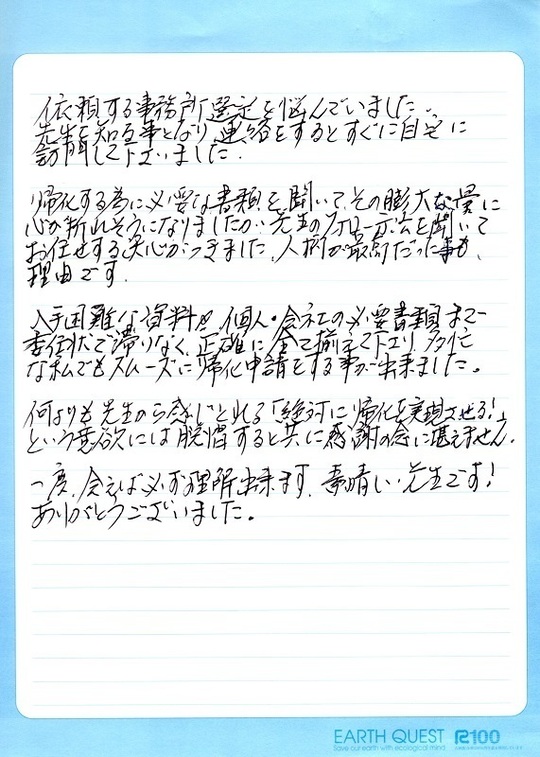 依頼する事務所選定を悩んでいました。
先生を知る事となり連絡をするとすぐに自宅に
訪問して下さいました。
帰化する為に必要な書類を聞いてその膨大な量に
心が折れそうになりましたが先生のフォロー方法を聞いて
お任せする決心がつきました。人柄が最高だった事も、
理由です。
入手困難な資料や個人・会社の必要書類まで
委任状で滞りなく正確に全て揃えて下さり多忙
な私でもスムーズに帰化申請をする事が出来ました。
何よりも先生から感じとれる「絶対に帰化を実現させる!」
という意欲には脱帽すると共に感謝の念に堪えません。
一度、会えば必ず理解出来ます、素晴しい先生です!
ありがとうございました。
EARTH QUEST R100
Save our earth with ecological mind